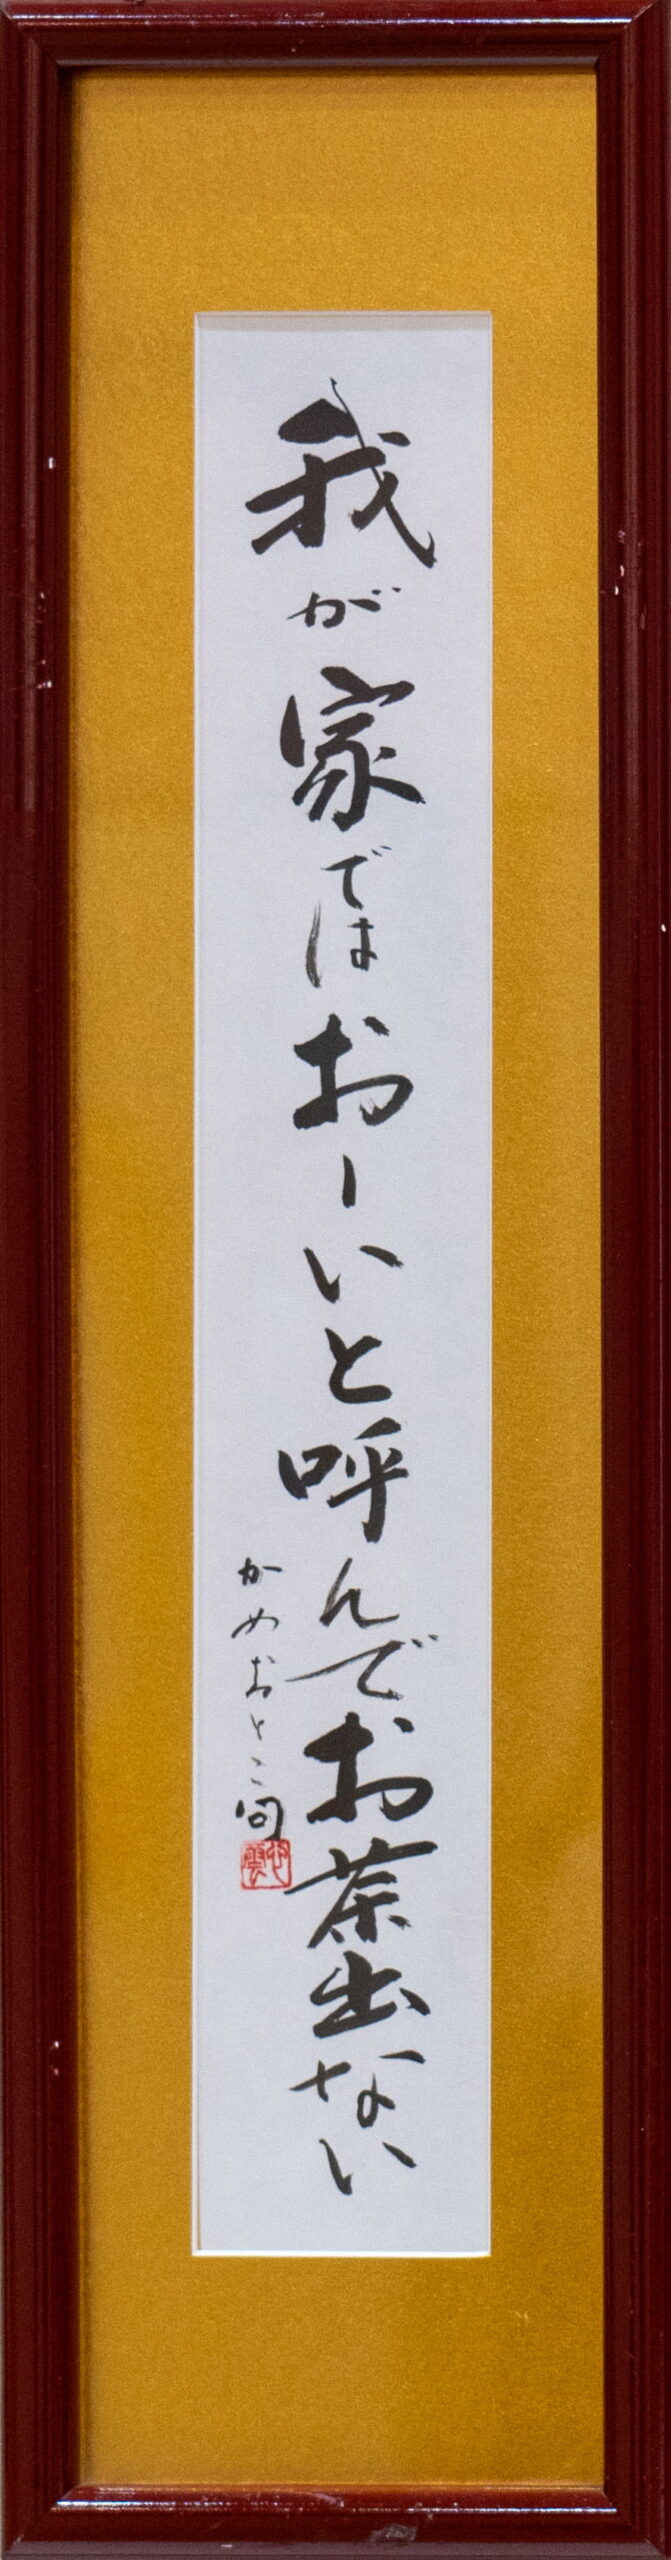 我が家ではおーいと呼んでお茶出ない
かめおとこ句